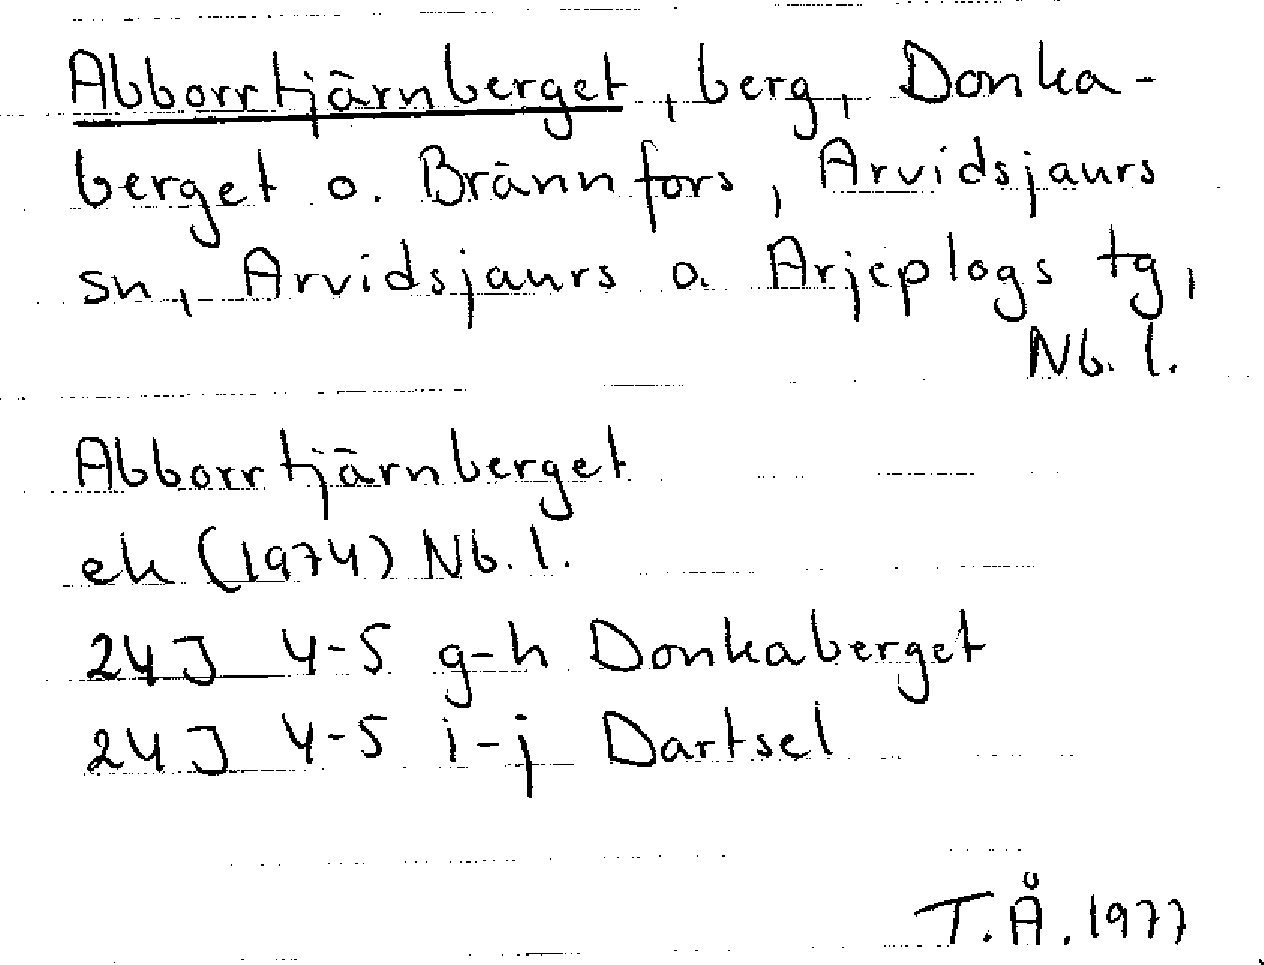 Abborrtjärnberget, berg, Donka-
berget o. Brännfors, Arvidsjaurs
sn, Arvidsjaurs o. Arjeplogs tg,
Nb. l.
Abborrtjärnberget
ek (1974) Nb. l.
24J 4-5 g-h Donkaberget
24J 4-5 i-j Dartsel
T.Å. 1977